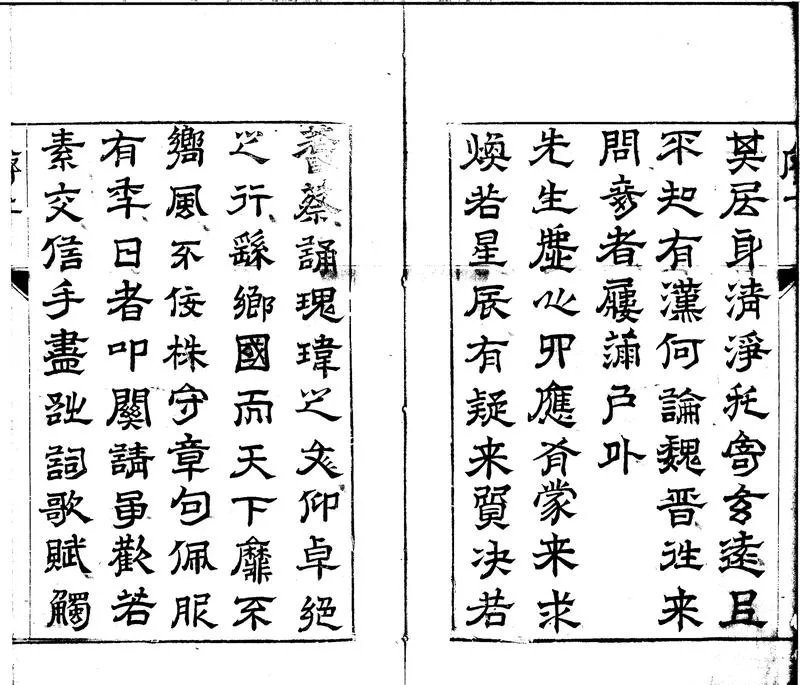 其居身清淨托寄玄遠且
不知有漢何論魏晉往来
問竒者屨滿户外
先生虛心四應有蒙来求
煥若星辰有疑来質决若
蓍蔡誦瑰瑋之文仰卓絕
之行繇鄉國而天下靡不
嚮風不佞株守章句佩服
有年日者叩關請事歡若
素交信手盡詩詞歌賦觸